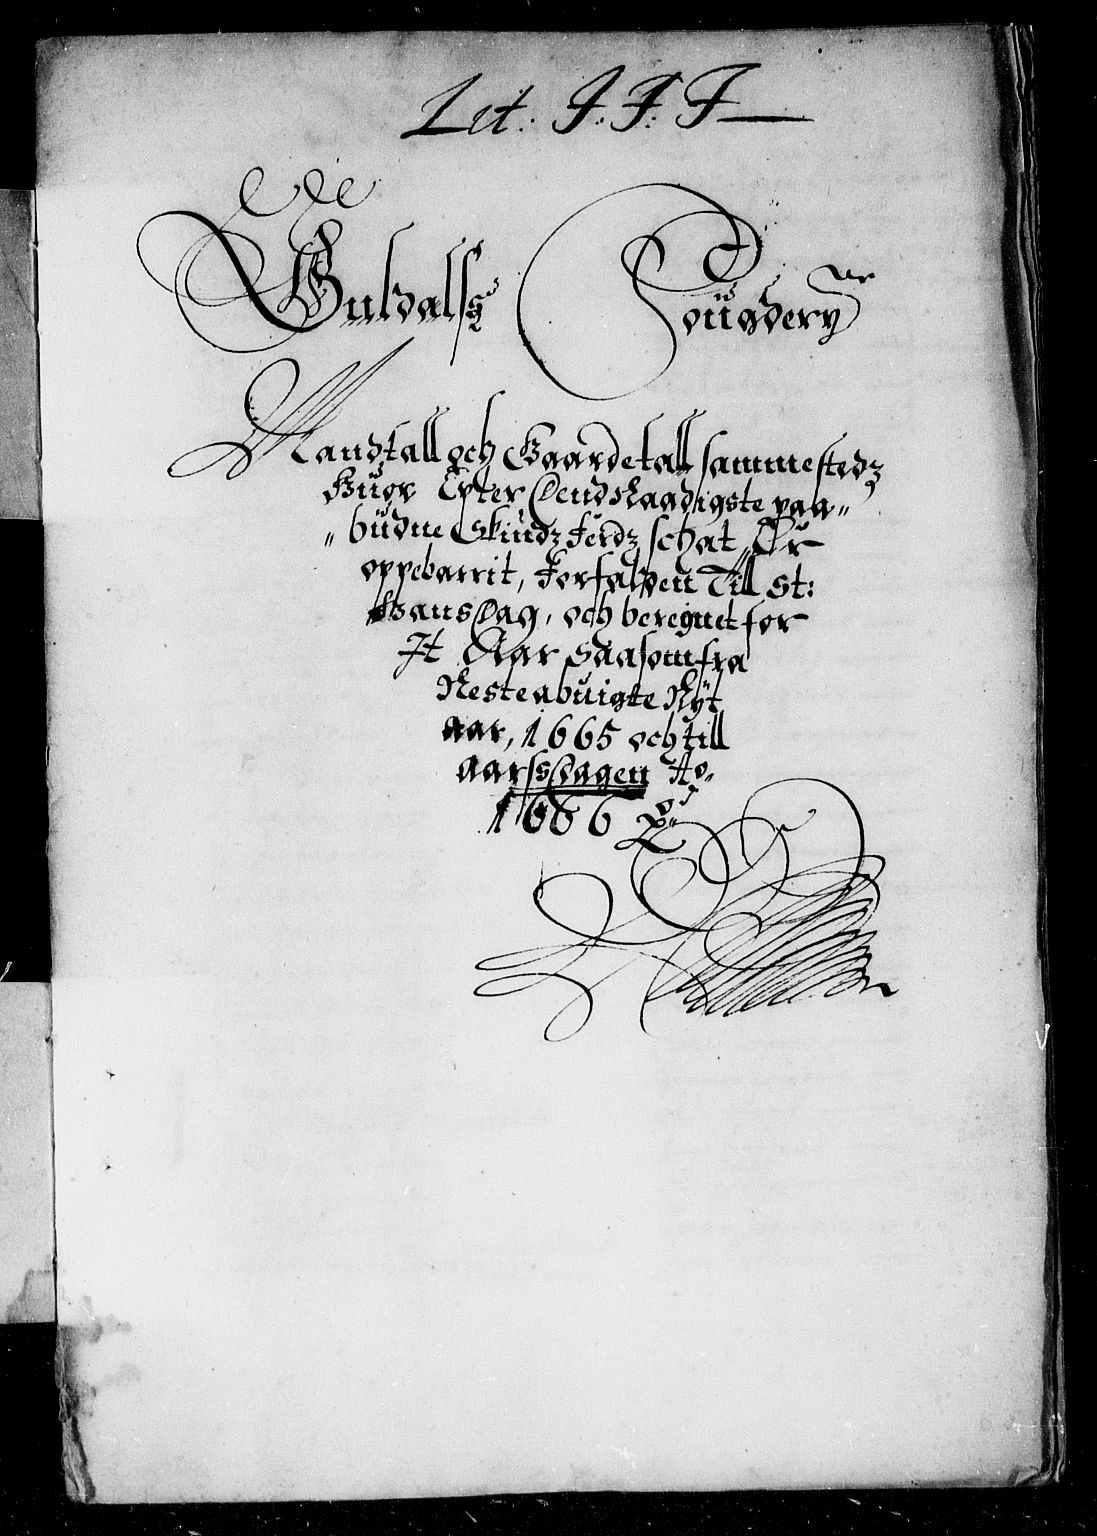 Lit: F. F: F
Guldals Fougdery
Mandtall och Gaardetall sammestedz
Huor Epter Dend Naadigste paa„
„büdne Skindz ferdz schat, Er
oppebarrit, forfalden Till St:
Hans Dag, och beregnet for
It Aar saasom fra
Nesteabuigte Nÿt
aar, 1665 och till
aarssdagen Ao.
1666